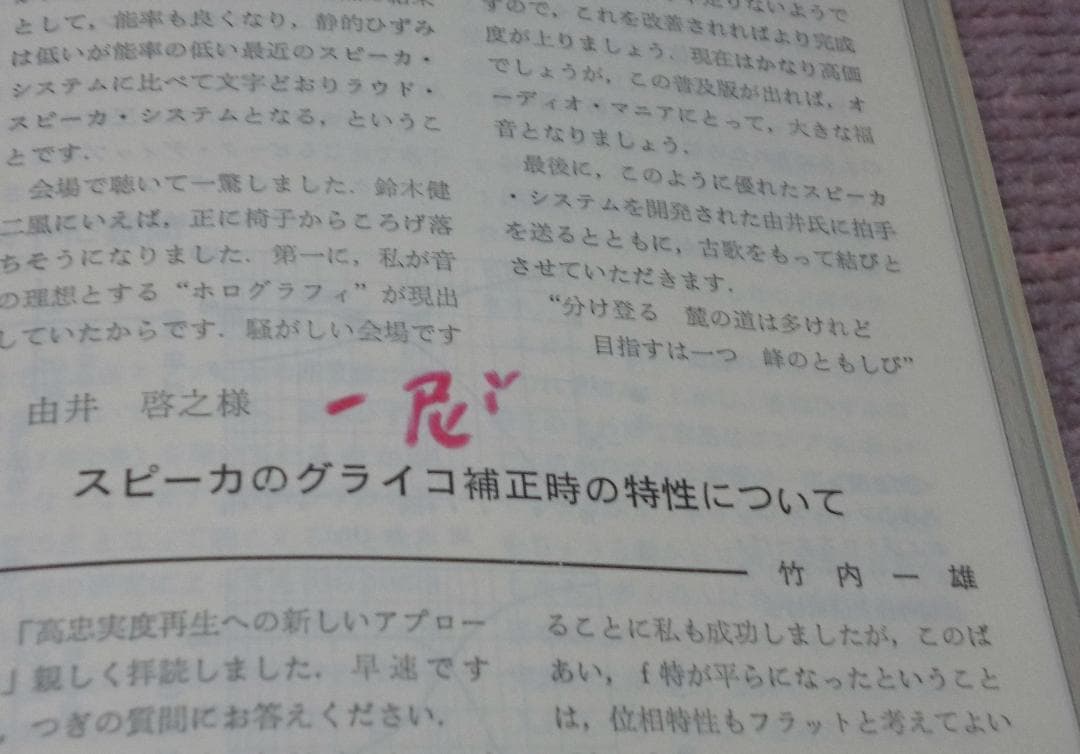 として，能率も良くなり，静的ひずみ
は低いが能率の低い最近のスピーカ・
システムに比べて文字どおりラウド・
スピーカ・システムとなる，というこ
とです．
会場で聴いて一驚しました．鈴木健
二風にいえば，正に椅子からころげ落
ちそうになりました．第一に，私が音
の理想とする“ホログラフィ”が現出
していたからです．騒がしい会場です
ずので，これを改善されればより完成
度が上りましょう．現在はかなり高価
でしょうが，この普及版が出れば，オ
ーディオ・マニアにとって，大きな福
音となりましょう．
最後に，このように優れたスピーカ
・システムを開発された由井氏に拍手
を送るとともに，古歌をもって結びと
させていただきます．
“分け登る　麓の道は多けれど
目指すは一つ　峰のともしび”
由井　啓之様
スピーカのグライコ補正時の特性について
竹内一雄
「高忠実度再生への新しいアプロー
」親しく拝読しました．早速です
，つぎの質問にお答えください．
ることに私も成功しましたが，このば
あい，ｆ特が平らになったということ
は，位相特性もフラットと考えてよい